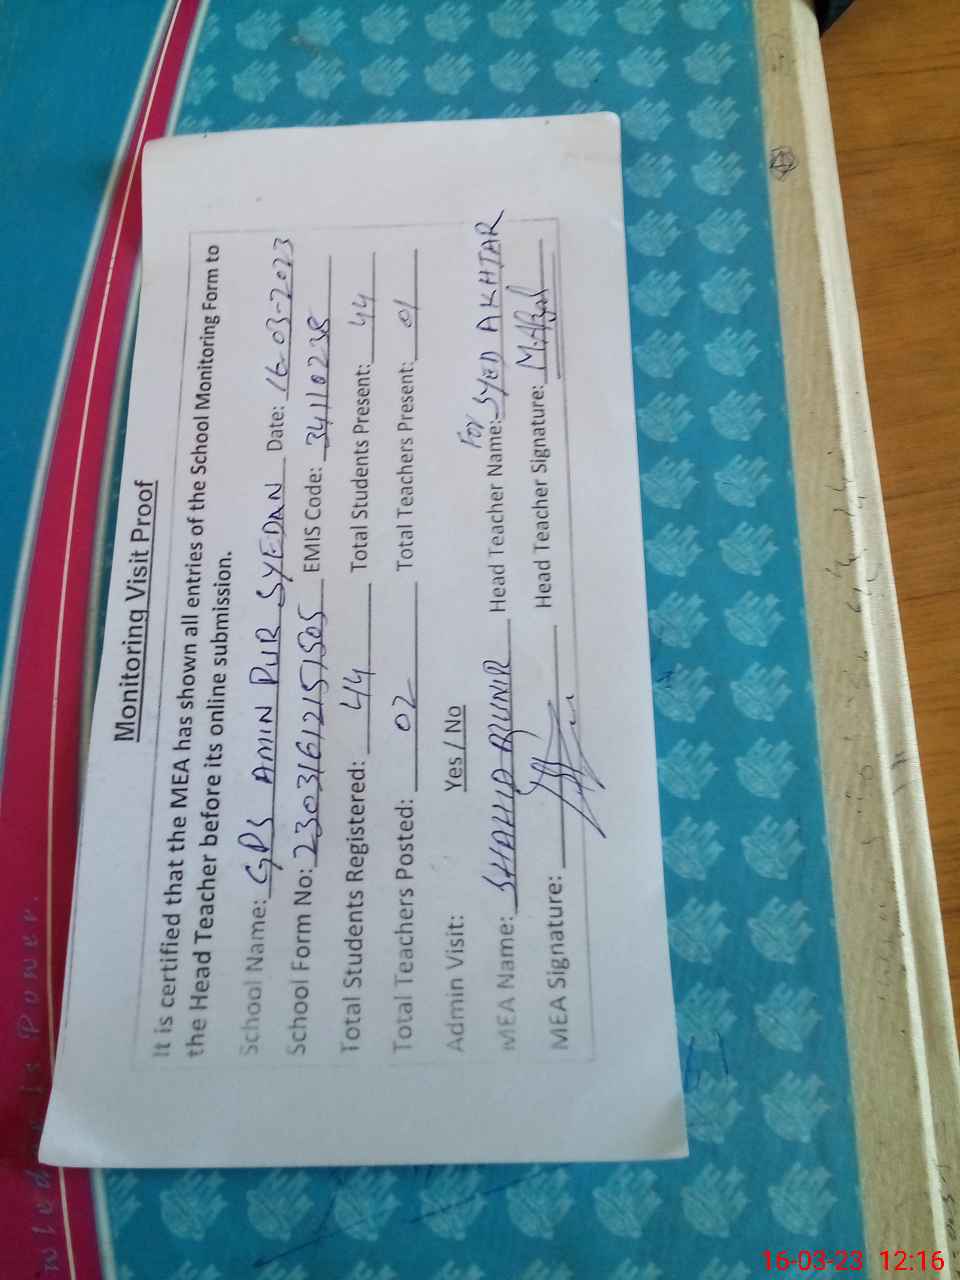 Monitoring Visit Proof
It is certified that the MEA has shown all entries of the School Monitoring Form to
the Head Teacher before its online submission.
School Name: GPS AMIN PUR SYEDAN Date: 16-03-2023
School Form No: 23031612151505 EMIS Code: 34110238
Total Students Registered: 44 Total Students Present: 44
Total Teachers Posted: 02 Total Teachers Present: 01
Admin Visit: Yes / No
For
MEA Name: Head Teacher Name: SYED AKHTAR
MEA Signature: Head Teacher Signature:
is Power.
16-03-23 12:16